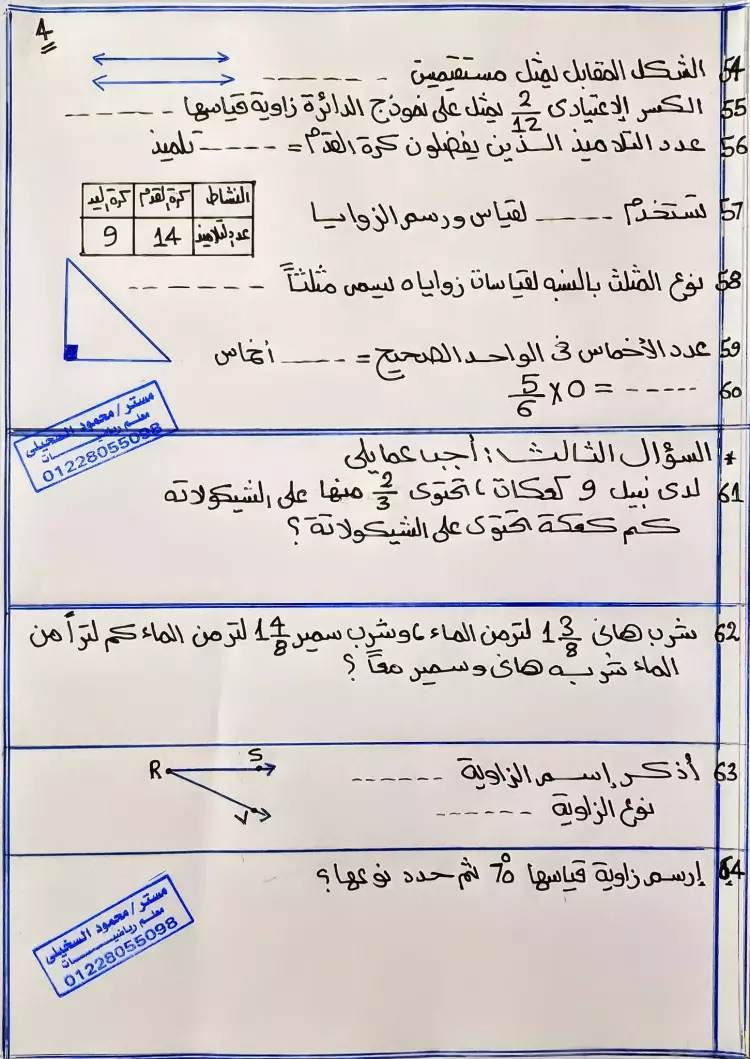 4
54 الشكل المقابل يمثل مستقيمين - - - - - -
55 الكسر الإعتيادى 2/12 يمثل على نموذج الدائرة زاوية قياسها - - - - - -
56 عدد التلاميذ الذين يفضلون كرة القدم = - - - - - تلميذ
النشاط | كرة القدم | كرة اليد
عدد التلاميذ | 14 | 9
57 تستخدم - - - - - لقياس ورسم الزوايا
58 نوع المثلث بالنسبه لقياسات زواياه يسمى مثلثاً - - - - - -
59 عدد الأخماس فى الواحد الصحيح = - - - - أخماس
60 5/6 × 0 = - - - - -
مستر / محمود السخيلى
معلم رياضيـــات
01228055098
* السؤال الثالث : أجب عما يلى
61 لدى نبيل 9 كعكات ، تحتوى 2/3 منها على الشيكولاته
كم كعكة تحتوى على الشيكولاتة ؟
62 شرب هانى 1 3/8 لتر من الماء ، وشرب سمير 1 4/8 لتر من الماء كم لتراً من
الماء شربه هانى وسمير معاً ؟
63 أذكر إسم الزاوية - - - - - -
نوع الزاوية - - - - - -
R S
V
64 إرسم زاوية قياسها 70° ثم حدد نوعها ؟
مستر / محمود السخيلى
معلم رياضيـــات
01228055098